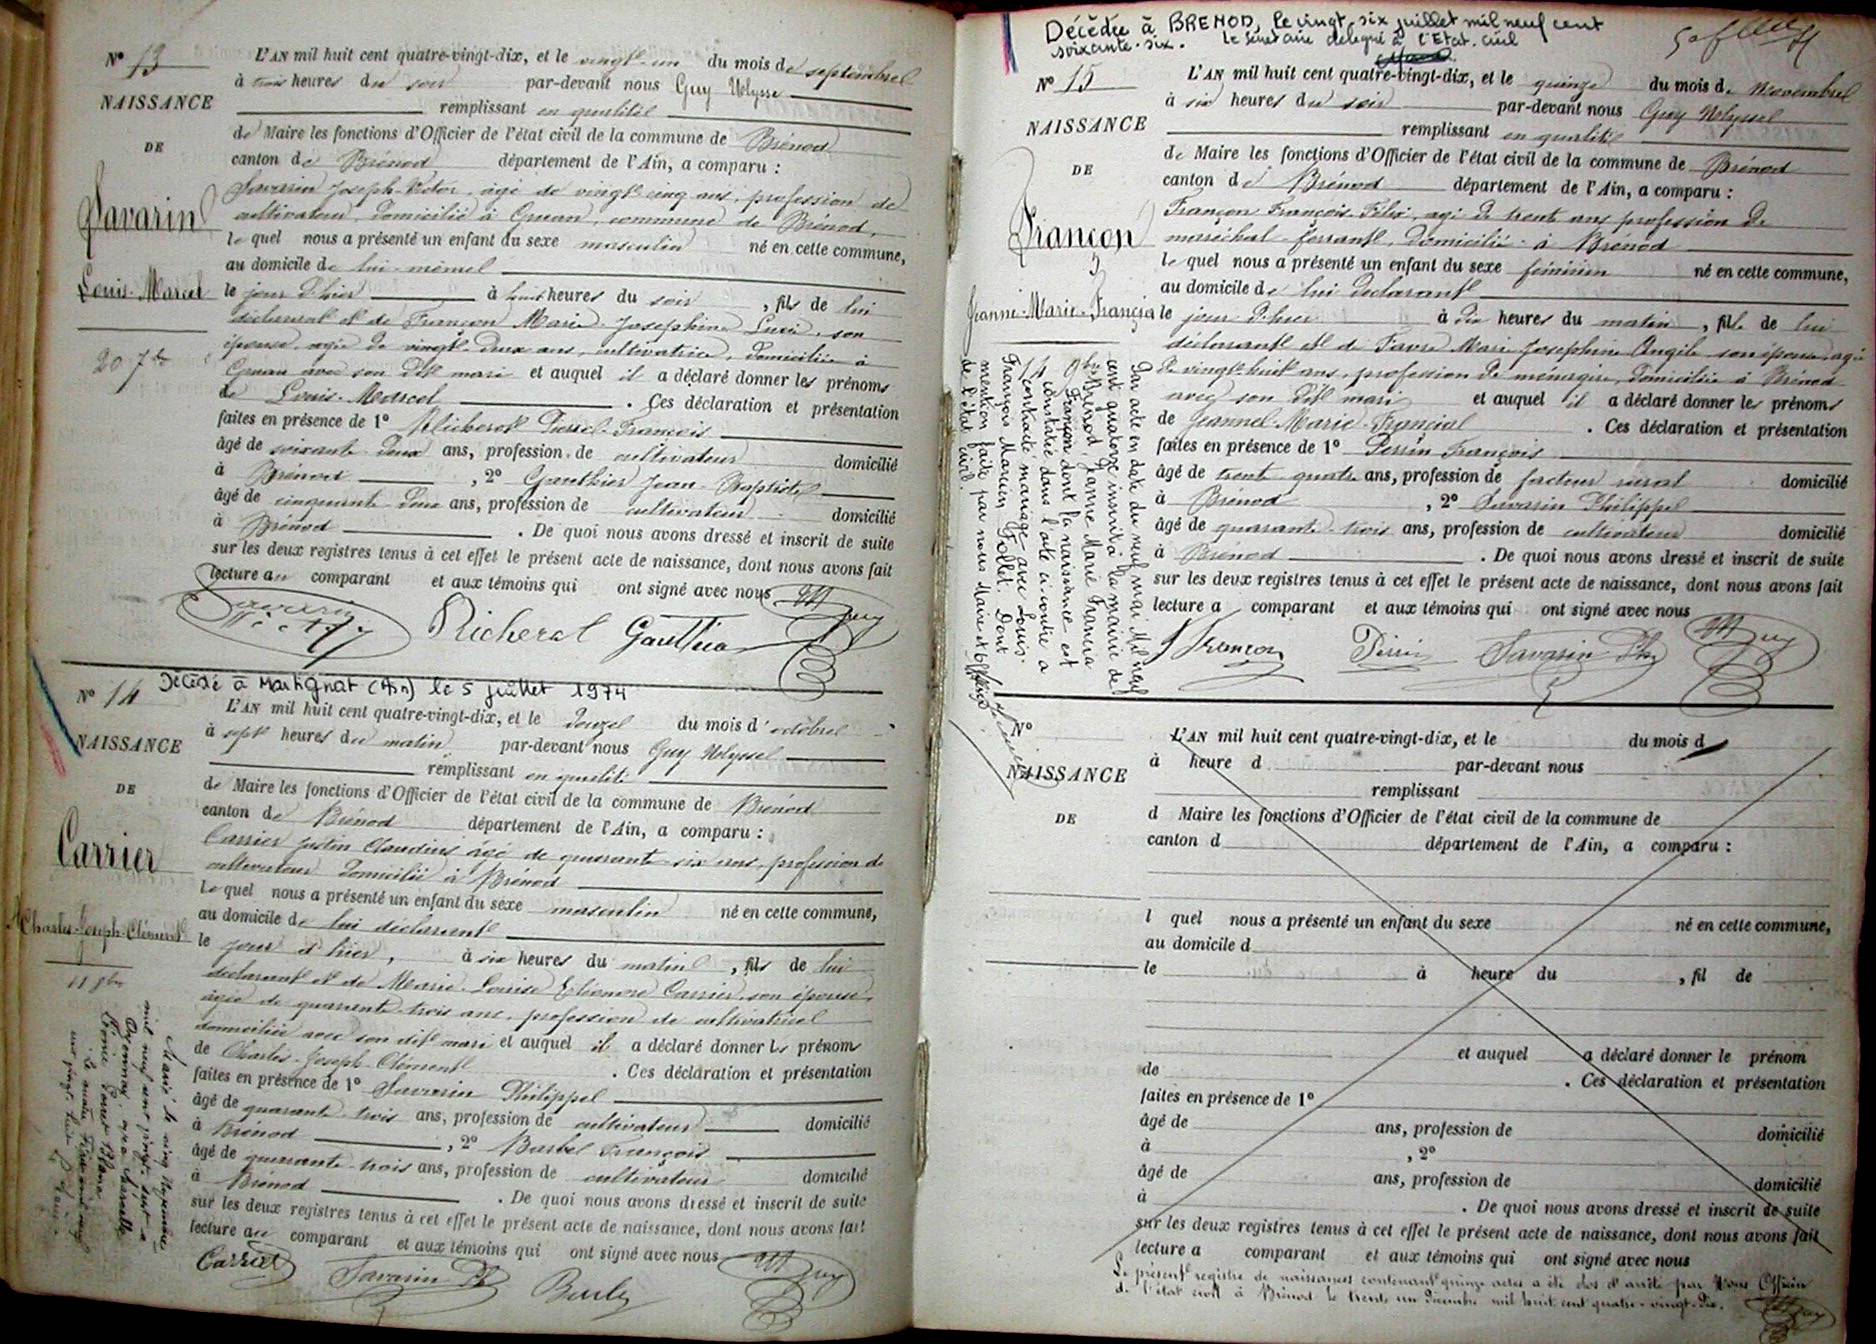 N° 13
NAISSANCE
DE
Savarin
Louis-Marcel
20 7bre
L'AN mil huit cent quatre-vingt-dix, et le vingt-un du mois de septembre
à trois heures du soir par-devant nous Guy Ulysse
remplissant en qualité
de Maire les fonctions d'Officier de l'état civil de la commune de Brénod
canton de Brénod département de l'Ain, a comparu :
Savarin Joseph-Victor, âgé de vingt-cinq ans, profession de
cultivateur, domicilié à Gruan, commune de Brénod,
le quel nous a présenté un enfant du sexe masculin né en cette commune,
au domicile de lui-même
le jour d'hier à huit heures du soir, fils de lui
déclarant et de Françon Marie-Josephine Luci, son
épouse, agée de vingt-deux ans, cultivatrice, domiciliée à
Gruan avec son dit mari et auquel il a déclaré donner les prénoms
de Louis-Marcel. Ces déclaration et présentation
faites en présence de 1° Richerot Pierre-François
âgé de soixante-deux ans, profession de cultivateur domicilié
à Brénod, 2° Gauthier Jean-Baptiste
âgé de cinquante-deux ans, profession de cultivateur domicilié
à Brénod. De quoi nous avons dressé et inscrit de suite
sur les deux registres tenus à cet effet le présent acte de naissance, dont nous avons fait
lecture au comparant et aux témoins qui ont signé avec nous
Savarin Victor Richerot Gauthier Guy
Décédé à Martignat (Ain) le 5 juillet 1974
N° 14
NAISSANCE
DE
Carrier
Charles-Joseph-Clément
11 8bre
Marié le cinq Novembre
mil neuf cent vingt-sept à
Oyonnax, avec
L'AN mil huit cent quatre-vingt-dix, et le douze du mois d'octobre
à sept heures du matin par-devant nous Guy Ulysse
remplissant en qualité
de Maire les fonctions d'Officier de l'état civil de la commune de Brénod
canton de Brénod département de l'Ain, a comparu :
Carrier Justin Claudius âgé de quarante-six ans, profession de
cultivateur domicilié à Brénod
le quel nous a présenté un enfant du sexe masculin né en cette commune,
au domicile de lui déclarant
le jour d'hier, à six heures du matin, fils de lui
déclarant et de Marie-Louise Eléonore Carrier, son épouse,
âgée de quarante-trois ans, profession de cultivatrice
domiciliée avec son dit mari et auquel il a déclaré donner les prénoms
de Charles-Joseph-Clément. Ces déclaration et présentation
faites en présence de 1° Savarin Philippe
âgé de quarante-trois ans, profession de cultivateur domicilié
à Brénod, 2° Barbel François
âgé de quarante-trois ans, profession de cultivateur domicilié
à Brénod. De quoi nous avons dressé et inscrit de suite
sur les deux registres tenus à cet effet le présent acte de naissance, dont nous avons fait
lecture au comparant et aux témoins qui ont signé avec nous
Carrier Savarin Ph Guy
Décédée à BRENOD, le vingt-six juillet mil neuf cent
soixante-six. Le secrétaire délégué à l'Etat-civil
N° 15
NAISSANCE
DE
Françon
Jeanne-Marie-Francia
14 9bre
Par acte en date du neuf mai Mil neuf
cent quatorze inscrit à la mairie de
Brénod, Jeanne Marie Francia
Françon dont la naissance est
constatée dans l'acte ci-contre a
contracté mariage avec Louis-
François Marcien Follet. Dont
mention faite par nous Maire et Officier
de l'état civil.
L'AN mil huit cent quatre-vingt-dix, et le quinze du mois de Novembre
à six heures du soir par-devant nous Guy Ulysse
remplissant en qualité
de Maire les fonctions d'Officier de l'état civil de la commune de Brénod
canton de Brénod département de l'Ain, a comparu :
Françon François-Félix, agé de trente ans profession de
maréchal-ferrant, domicilié à Brénod
le quel nous a présenté un enfant du sexe féminin né en cette commune,
au domicile de lui déclarant
le jour d'hier à dix heures du matin, fille de lui
déclarant et de Favre Marie Josephine Angèle son épouse, agée
de vingt-huit ans, profession de ménagère, domiciliée à Brénod
avec son dit mari et auquel il a déclaré donner les prénoms
de Jeanne-Marie-Francia. Ces déclaration et présentation
faites en présence de 1° Perrin François
âgé de trente-quatre ans, profession de facteur rural domicilié
à Brénod, 2° Savarin Philippe
âgé de quarante-trois ans, profession de cultivateur domicilié
à Brénod. De quoi nous avons dressé et inscrit de suite
sur les deux registres tenus à cet effet le présent acte de naissance, dont nous avons fait
lecture a comparant et aux témoins qui ont signé avec nous
Françon Perrin Savarin Ph Guy
N°
NAISSANCE
DE
L'AN mil huit cent quatre-vingt-dix, et le du mois d
à heure d par-devant nous
remplissant
d Maire les fonctions d'Officier de l'état civil de la commune de
canton d département de l'Ain, a comparu :
l quel nous a présenté un enfant du sexe né en cette commune,
au domicile d
le à heure du , fil de
et auquel a déclaré donner le prénom
de . Ces déclaration et présentation
faites en présence de 1°
âgé de ans, profession de domicilié
à , 2°
âgé de ans, profession de domicilié
à . De quoi nous avons dressé et inscrit de suite
sur les deux registres tenus à cet effet le présent acte de naissance, dont nous avons fait
lecture a comparant et aux témoins qui ont signé avec nous
Le présent registre de naissances contenant quinze actes a été clos et arrêté par Nous Officier
de l'état civil à Brénod le trente un Décembre mil huit cent quatre-vingt-dix. Guy